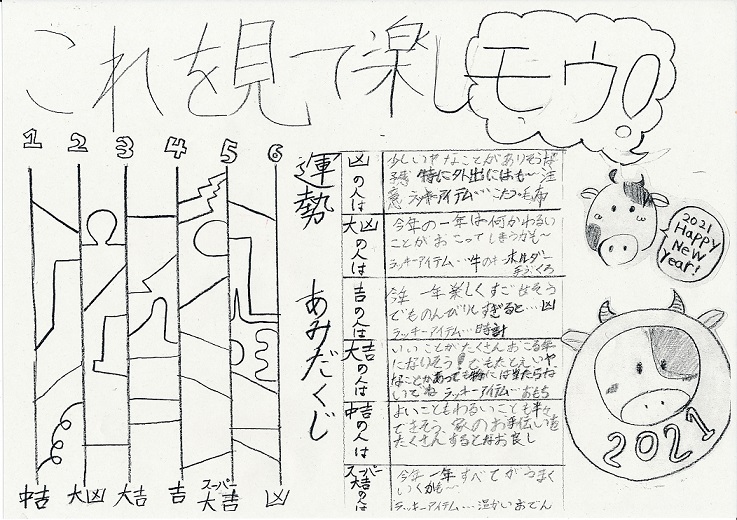 これを見て楽しモウ!
1 2 3 4 5 6
中吉 大凶 大吉 吉 スーパー大吉 凶
運勢 あみだくじ
凶の人は
少しいやなことがありそうな
予感 特に外出にはも〜注
意 ラッキーアイテム…こたつ・毛布
大凶の人は
今年の一年は何かわるい
ことがおこってしまうかも〜
ラッキーアイテム…牛のキーホルダー
手ぶくろ
吉の人は
今年一年楽しくすごせそう
でものんびりしすぎると…凶
ラッキーアイテム…時計
大吉の人は
いいことがたくさんおこる年
になりそう!でもたとえいや
なことがあっても物には当たらな
いでね ラッキーアイテム…おもち
中吉の人は
よいこともわるいことも半々
できそう、家のお手伝いを
たくさんするとなお良し
スーパー大吉の人は
今年一年すべてがうまく
いくかも〜
ラッキーアイテム…温かいおでん
2021
Happy
New
Year!
2021